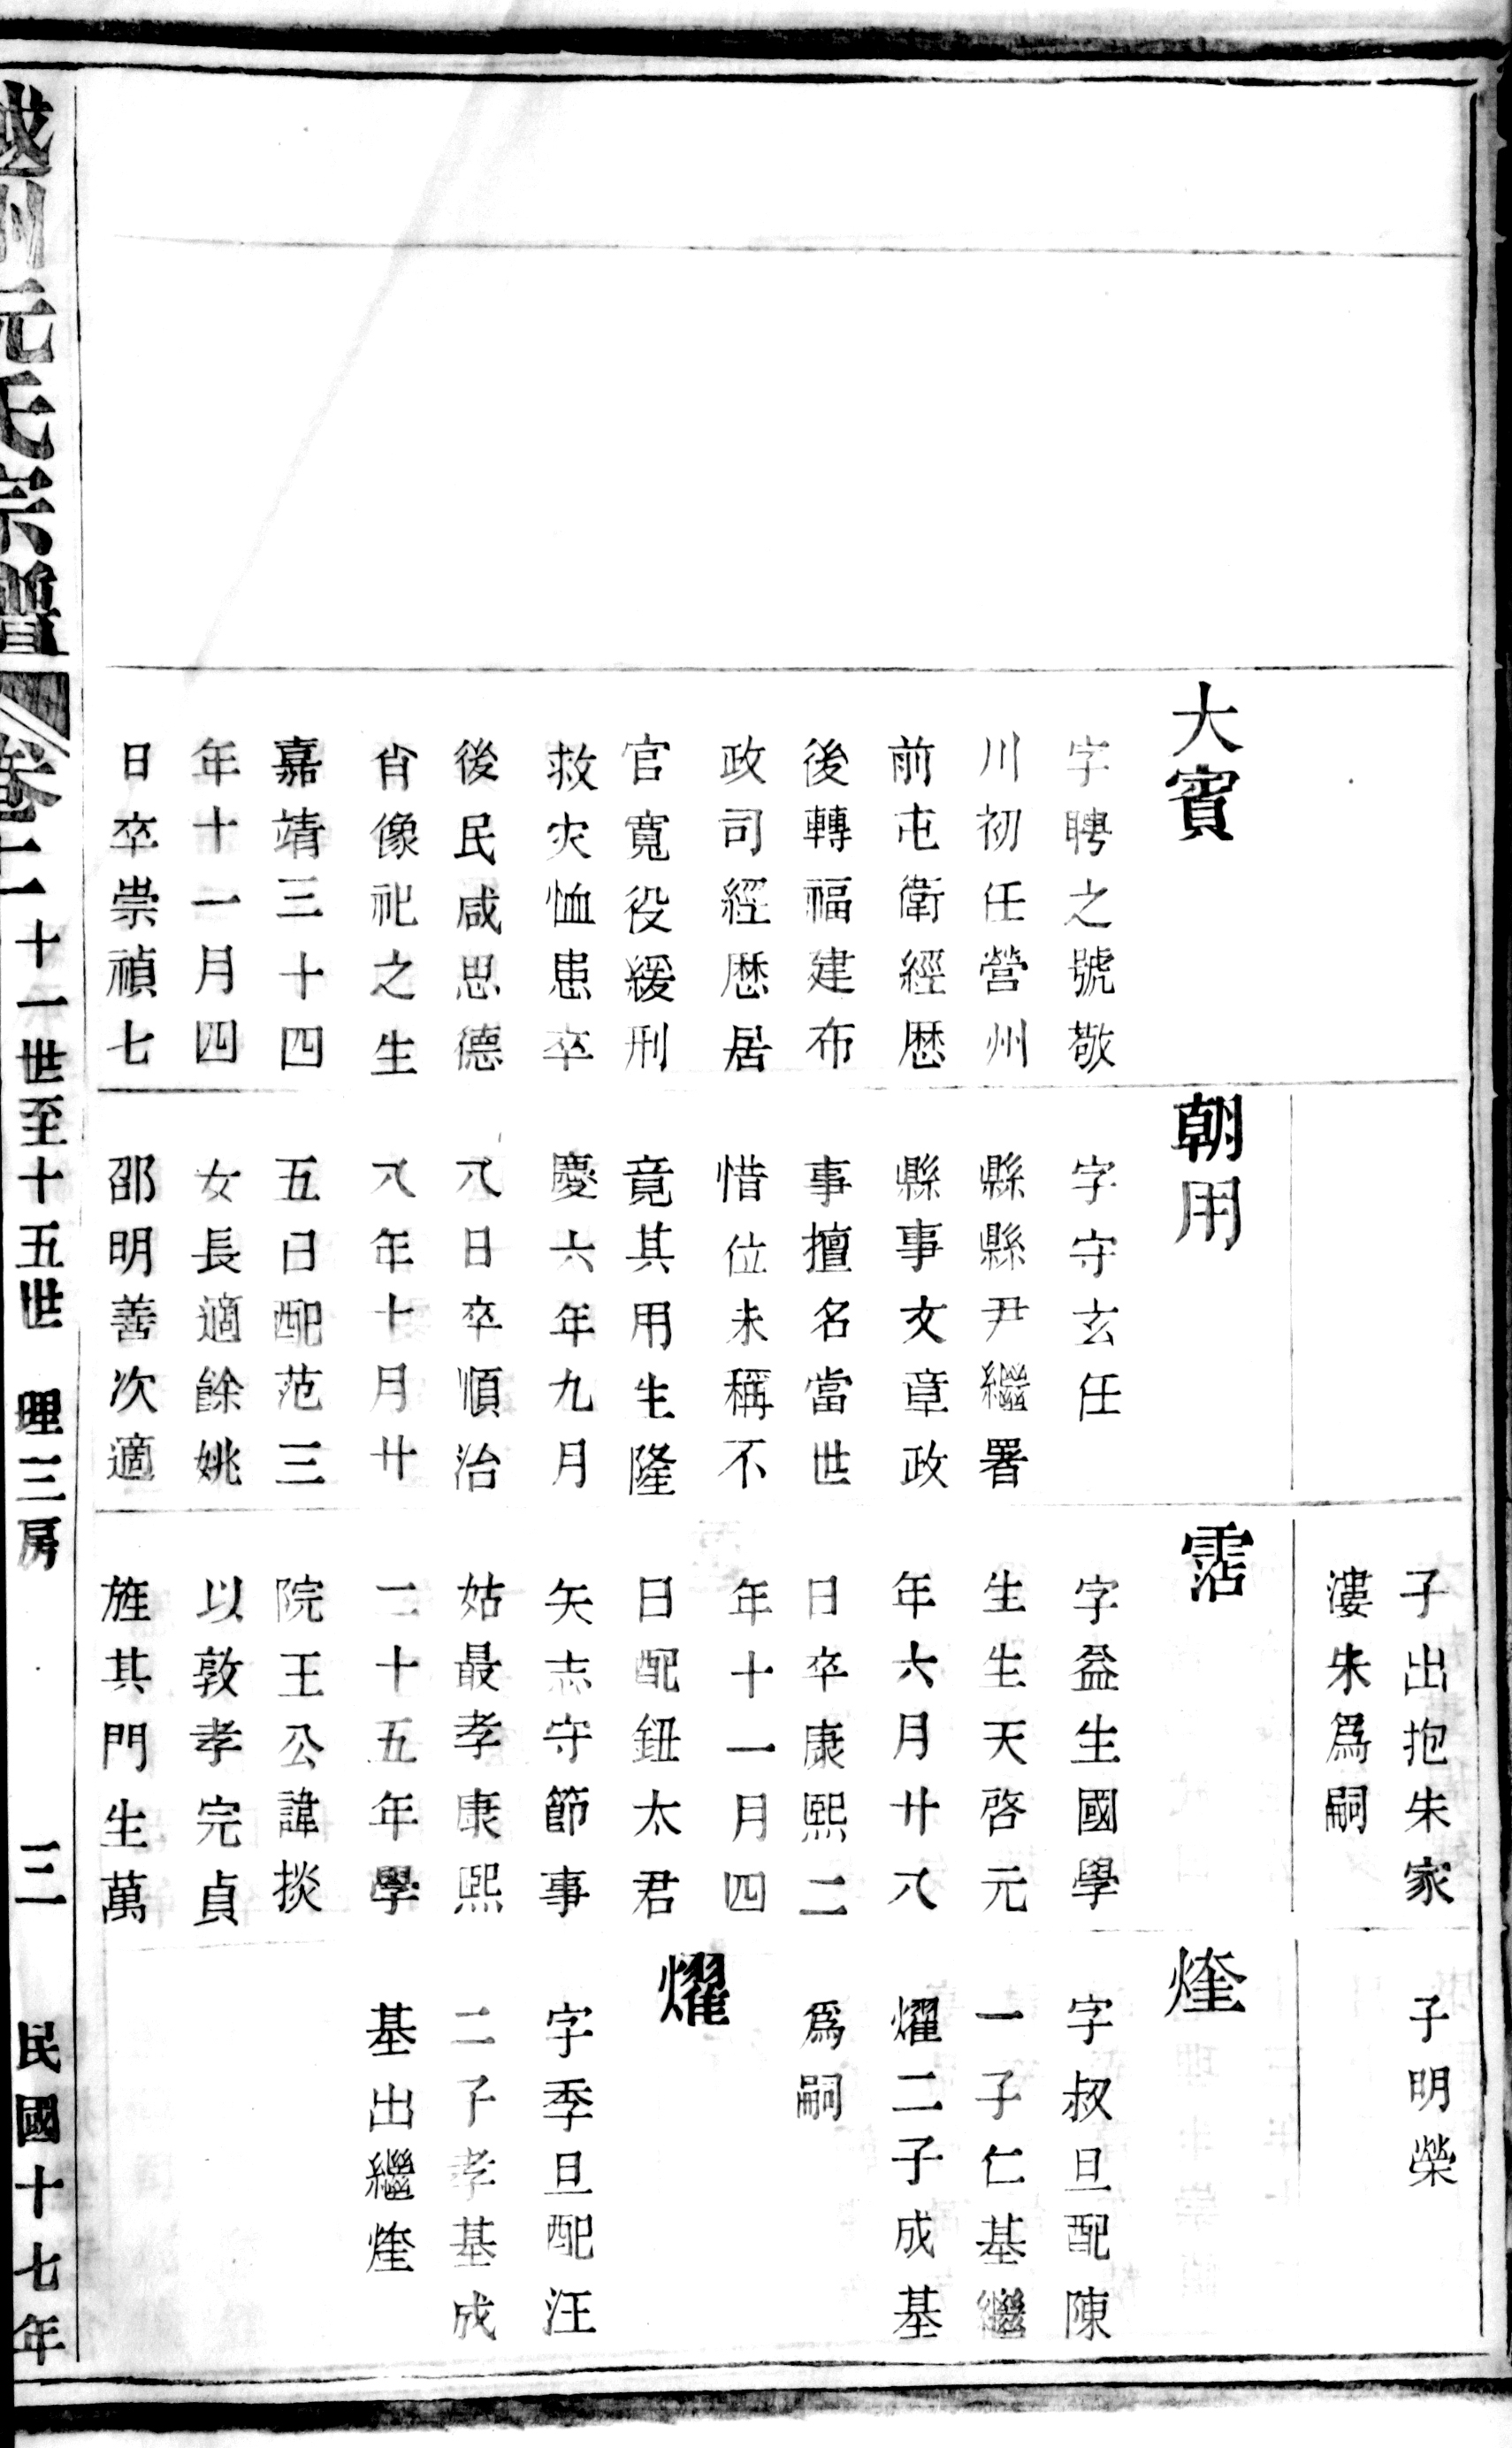 大賓
字聘之號敬
川初任營州
前屯衛經歷
後轉福建布
政司經歷居
官寬役緩刑
救灾恤患卒
後民咸思德
肖像祀之生
嘉靖三十四
年十一月四
日卒崇禎七
朝用
字守玄任
縣縣尹繼署
縣事文章政
事擅名當世
惜位未稱不
竟其用生隆
慶六年九月
八日卒順治
八年十月廿
五日配范三
女長適餘姚
邵明善次適
子出抱朱家
漊朱爲嗣
霑
字益生國學
生生天啓元
年六月廿八
日卒康熙二
年十一月四
日配鈕太君
矢志守節事
姑最孝康熙
二十五年學
院王公諱掞
以敦孝完貞
旌其門生萬
子明榮
煃
字叔旦配陳
一子仁基繼
燿二子成基
爲嗣
燿
字季旦配汪
二子孝基成
基出繼煃
越州阮氏宗譜
卷十一 十一世至十五世 理三房 三 民國十七年